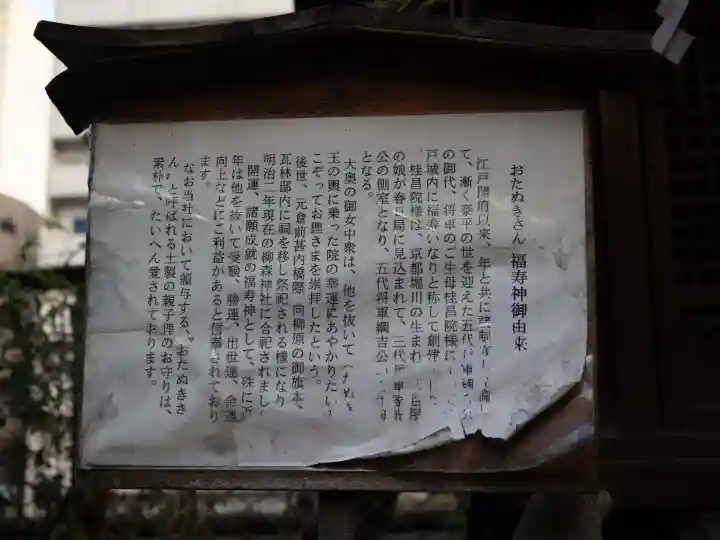 おたぬきさん 福寿神御由来
江戸開府以来、年と共に
て、漸く泰平の世を迎えた五代
の御代、将軍のご生母桂昌院様に
戸城内に福寿いなりと称して創建
桂昌院様は、京都堀川の生まれ
の娘が春日局に見込まれて、三代
公の側室となり、五代将軍綱吉公
となる。
大奥の御女中衆は、他を抜いて(
王の輿に乗った院の幸運にあやかりたい
こぞってお狸さまを崇拝したという。
後世、元倉前甚内橋際 向柳原の御旗本、
瓦林邸内に祠を移し祭祀される様になり
明治二年現在の柳森神社に合祀されまし
開運、諸願成就の福寿神として、殊に近
年は他を抜いて受験、勝運、出世運、金運
向上などにご利益があると信奉されており
ます。
なお当社において頒与する、〝おたぬきさ
ん〟と呼ばれる土製の親子狸のお守りは、
素朴で、たいへん愛されております。